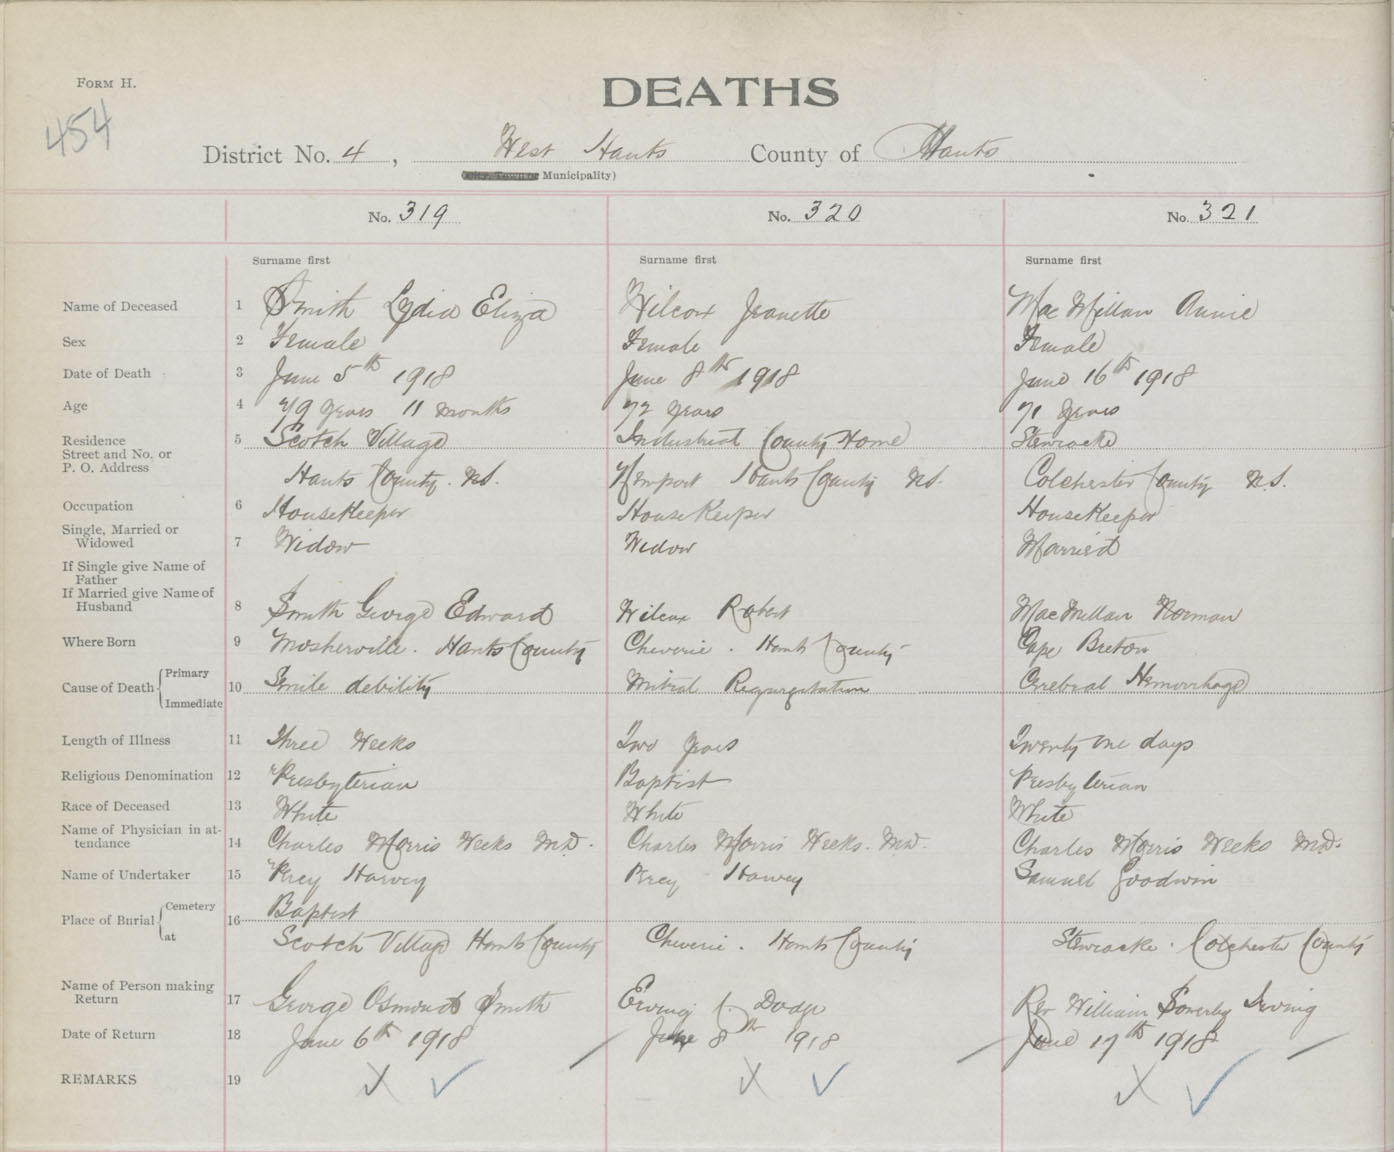 FORM H.
DEATHS
454
District No. 4, West Hants County of Hants
Municipality)
No. 319 No. 320 No. 321
Surname first Surname first Surname first
Name of Deceased 1 Smith Lydia Eliza Wilcox Jeanette MacMillan Annie
Sex 2 Female Female Female
Date of Death 3 June 5th 1918 June 8th 1918 June 16th 1918
Age 4 79 years 11 months 72 years 71 years
Residence 5 Scotch Village Industrial County Home Stewiacke
Street and No. or
P. O. Address Hants County. N.S. Newport Hants County N.S. Colchester County N.S.
Occupation 6 HouseKeeper HouseKeeper HouseKeeper
Single, Married or
Widowed 7 Widow Widow Married
If Single give Name of
Father
If Married give Name of
Husband 8 Smith George Edward Wilcox Robert MacMillan Norman
Where Born 9 Mosherville. Hants County Cheverie. Hants County Cape Breton
Cause of Death Primary
Immediate 10 Senile debility Mitral Regurgitation Cerebral Hemorrhage
Length of Illness 11 Three Weeks Two years Twenty one days
Religious Denomination 12 Presbyterian Baptist Presbyterian
Race of Deceased 13 White White White
Name of Physician in at-
tendance 14 Charles Morris Weeks M.D. Charles Morris Weeks. M.D. Charles Morris Weeks M.D.
Name of Undertaker 15 Percy Harvey Percy Harvey Samuel Goodwin
Place of Burial Cemetery 16 Baptist
at Scotch Village Hants County Cheverie. Hants County Stewiacke. Colchester County
Name of Person making
Return 17 George Osmond Smith Erving C. Dodge Rev William Sowerby Irving
Date of Return 18 June 6th 1918 June 8th 1918 June 17th 1918
REMARKS 19 X ✓ X ✓ X ✓